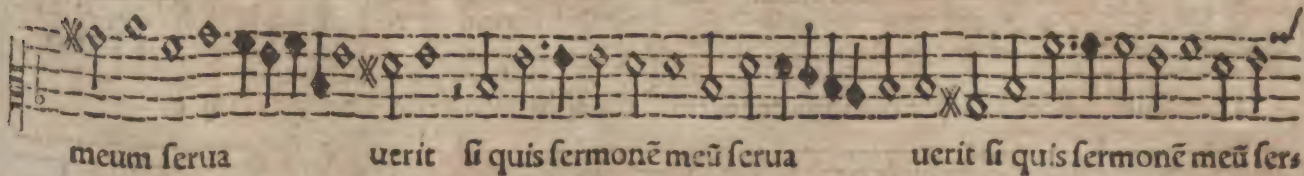 meum ſerua uerit ſi quis ſermonē meū ſerua uerit ſi quis ſermonē meū ſers